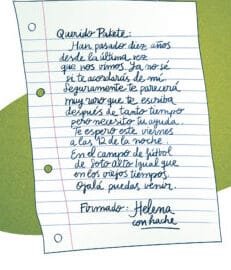 Querido Pakete:
Han pasado diez años
desde la última vez
que nos vimos. Ya no sé
si te acordarás de mí.
Seguramente te parecerá
muy raro que te escriba
después de tanto tiempo
pero necesito tu ayuda.
Te espero este viernes
a las 12 de la noche.
En el campo de fútbol
de Soto Alto Igual que
en los viejos tiempos.
Ojalá puedas venir.
Firmado: Helena
con hache